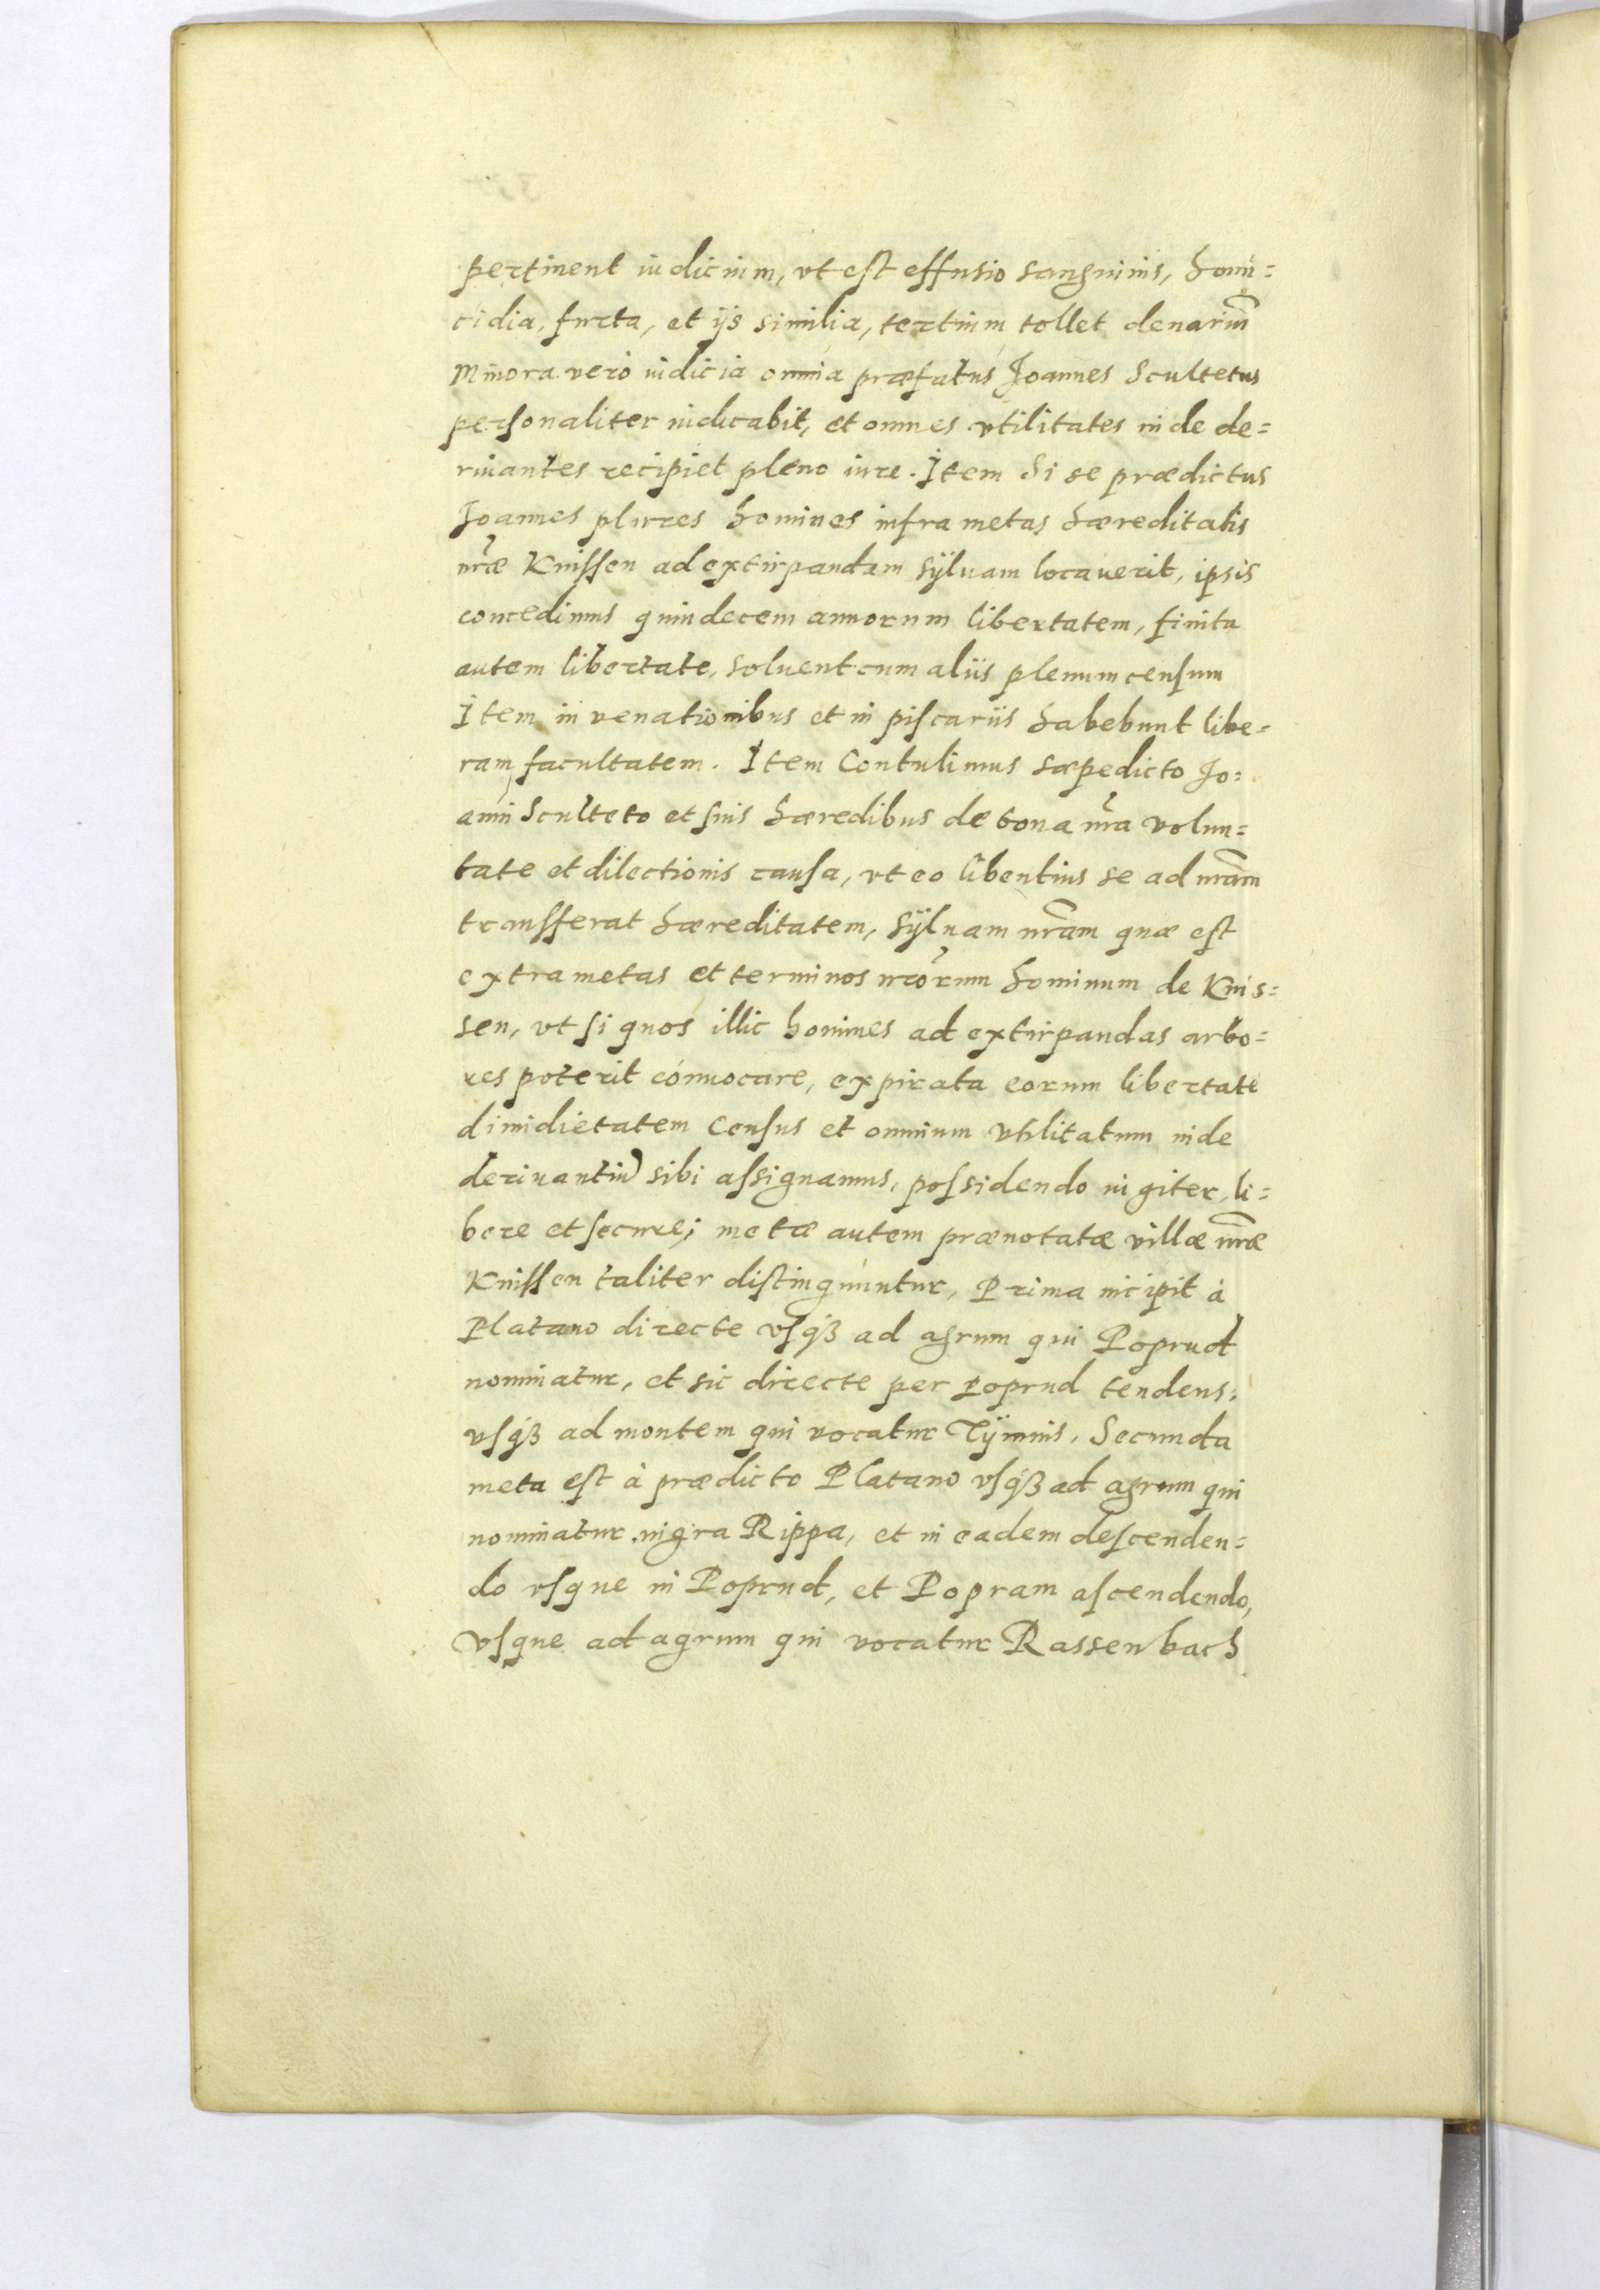 pertinent iudicium, vt est effusio sanguinis, homi=
cidia, furta, et ijs similia, tertium tollet denariũ
Minora verò iudicia omnia præfatus Joannes Scultetus
personaliter iudicabit, et omnes vtilitates inde de=
riuantes recipiet pleno iure. Item Si se prædictus
Joannes plures homines infra metas hæreditatis
nr̃æ Knissen ad extirpandam sÿluam locauerit, ipsis
concedimus quindecem annorum libertatem, finita
autem libertate, soluent cum aliis plenum censum
Item in venationibus et in piscariis habebunt libe=
ram facultatem. Item Contulimus sæpedicto Jo=
anni Sculteto et suis hæredibus de bona nr̃a volun=
tate et dilectionis causa, vt eo libentius se ad nr̃am
transferat hæreditatem, sÿluam nr̃am quæ est
extra metas et terminos nr̃orum hominum de Knis=
sen, vt si quos illic homines ad extirpandas arbo=
res poterit conuocare, expirata eorum libertate
dimidietatem Census et omnium vtilitatum inde
deriuantiũ sibi assignamus, possidendo iugiter, li=
bere et secure; metæ autem prænotatæ villæ nr̃æ
Knissen taliter distinguuntur, Prima incipit à
Platano directe vsqꝫ ad agrum qui Poprud
nominatur, et sic directe per Poprud tendens,
vsqꝫ ad montem qui vocatur Tÿmnis. Secunda
meta est à prædicto Platano vsqꝫ ad agrum qui
nominatur nigra Rippa, et in eadem descenden=
do vsque in Poprud, et Popram ascendendo,
vsque ad agrum qui vocatur Rassenbach